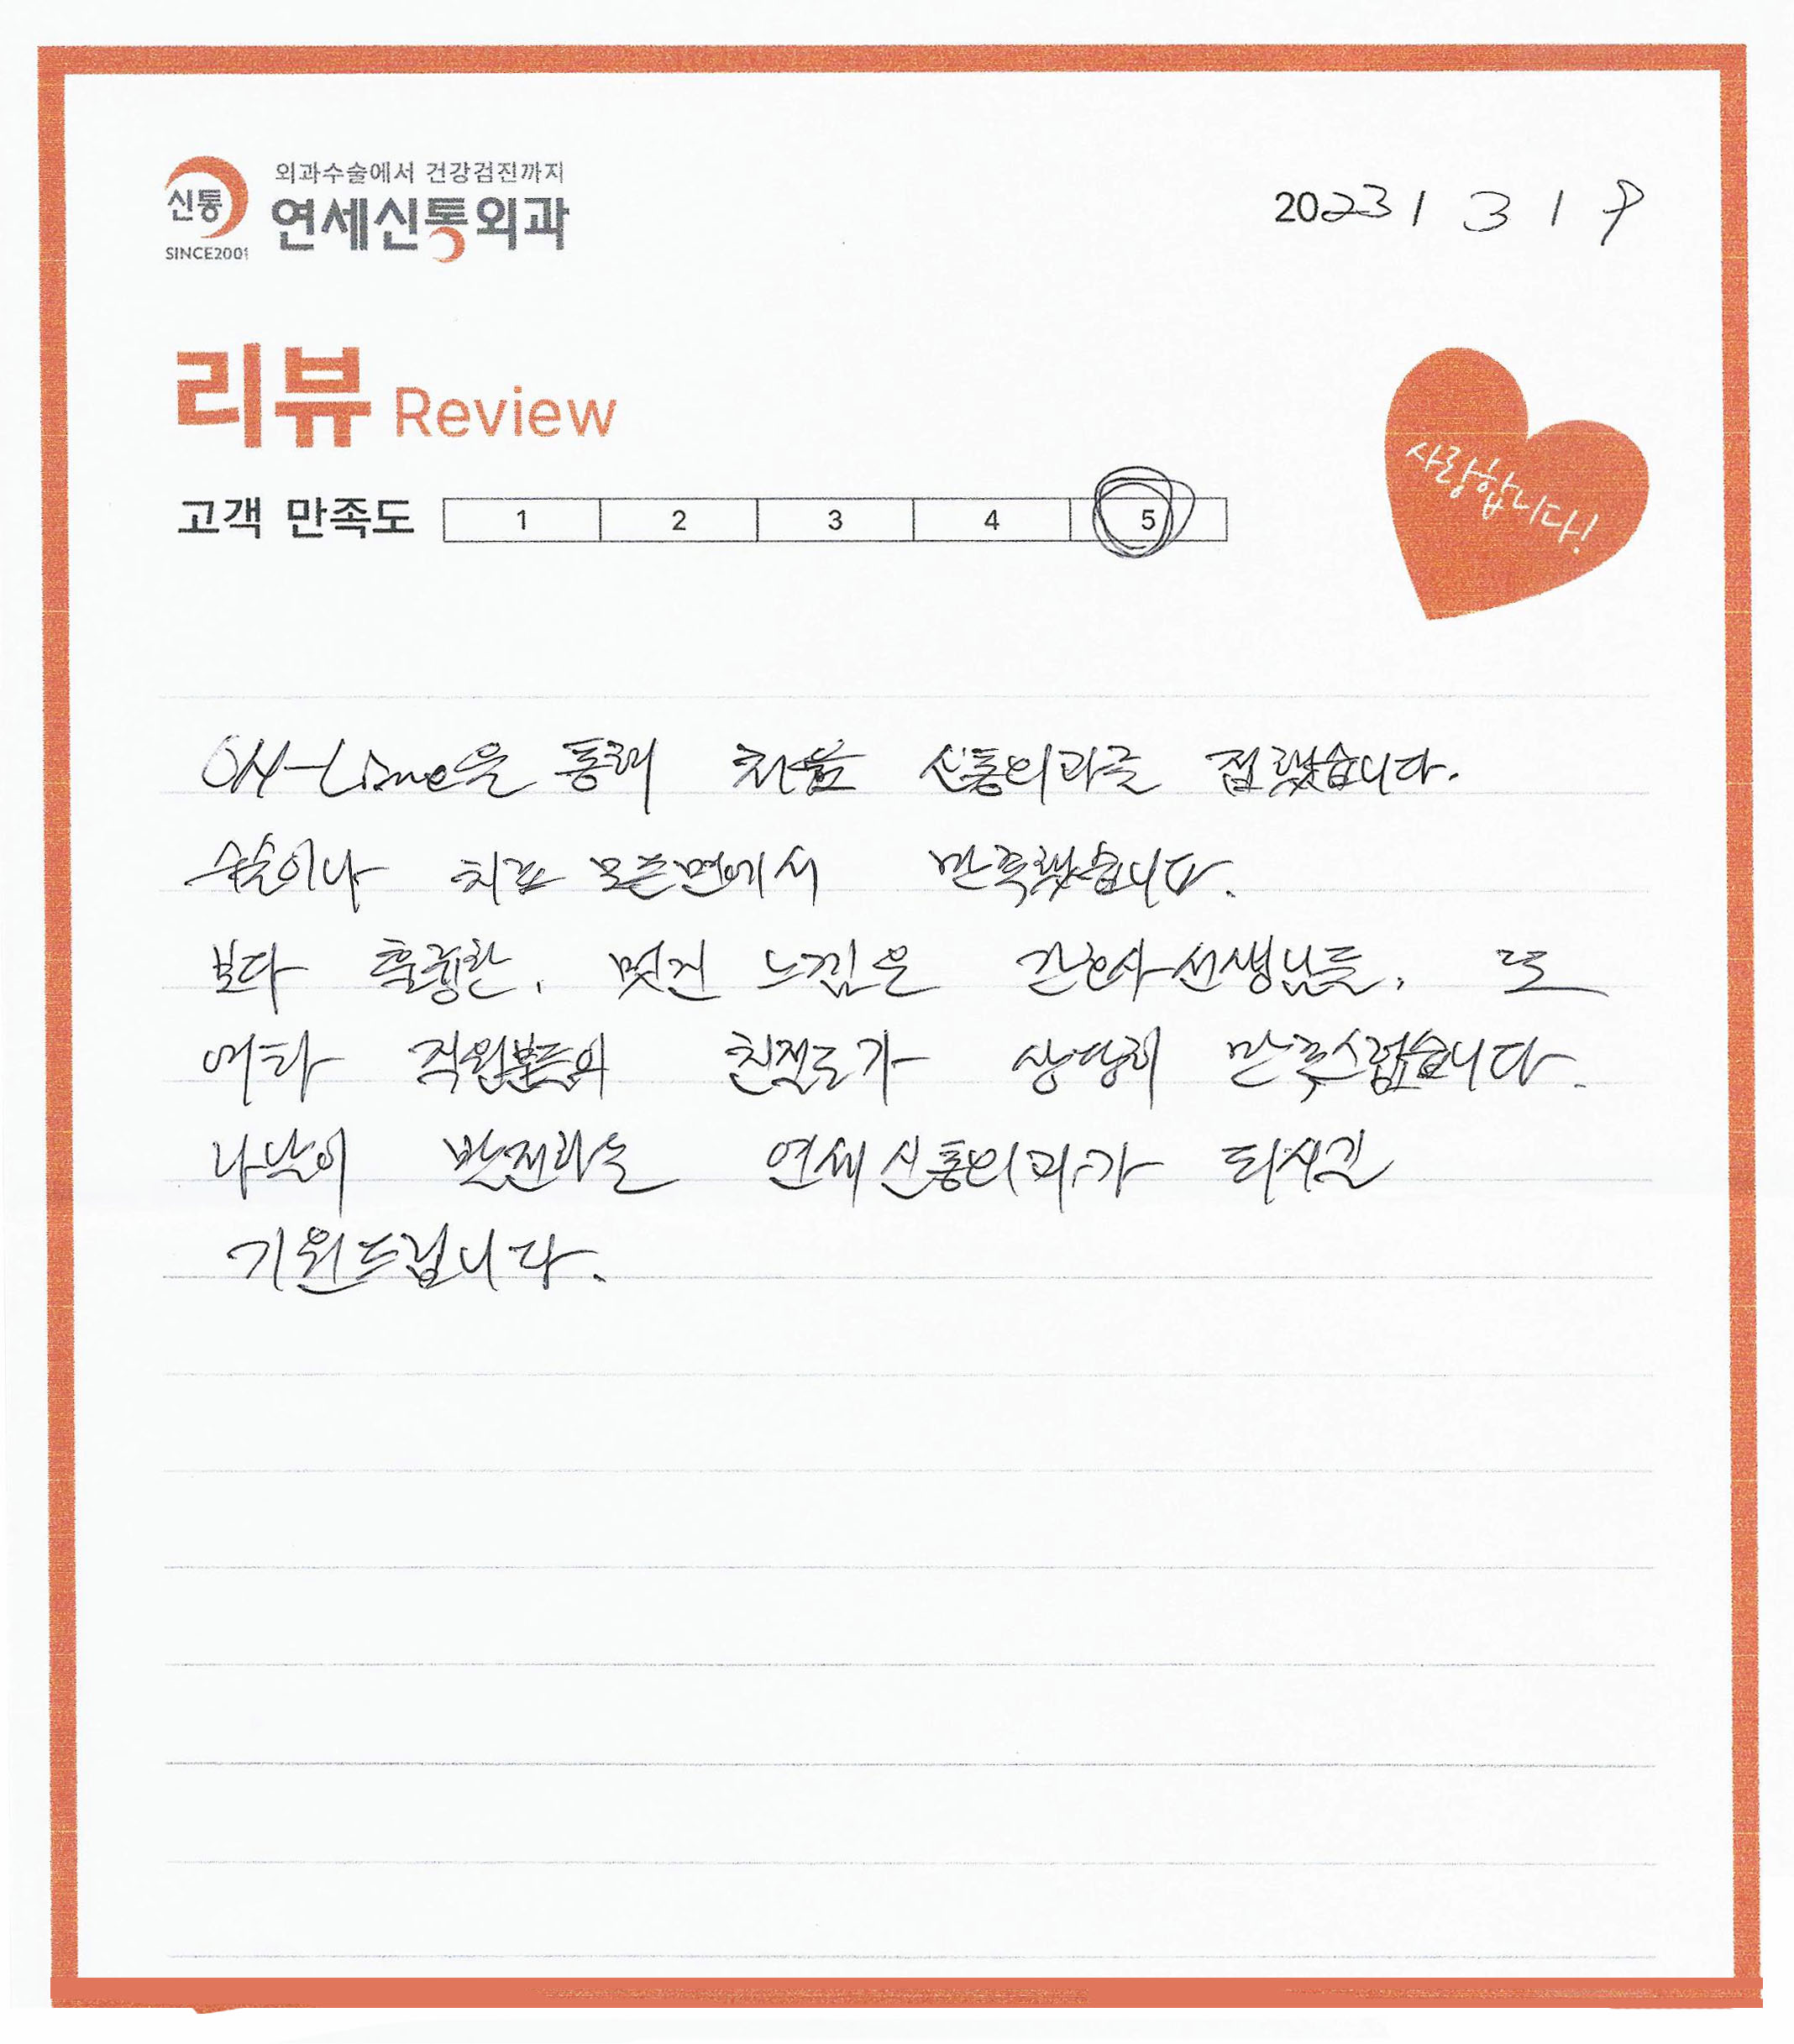 외과수술에서 건강검진까지
신통
연세신통외과
SINCE2001
2023 / 3 / 9
리뷰 Review
고객 만족도 1 2 3 4 5
사랑합니다!
ON-Line을 통해 처음 신통외과를 접했습니다.
수술이나 치료 모든면에서 만족했습니다.
보다 훌륭한, 멋진 느낌은 간호사선생님들, 또
여타 직원분들의 친절도가 상당히 만족스럽습니다.
나날이 발전하는 연세신통외과가 되시길
기원드립니다.